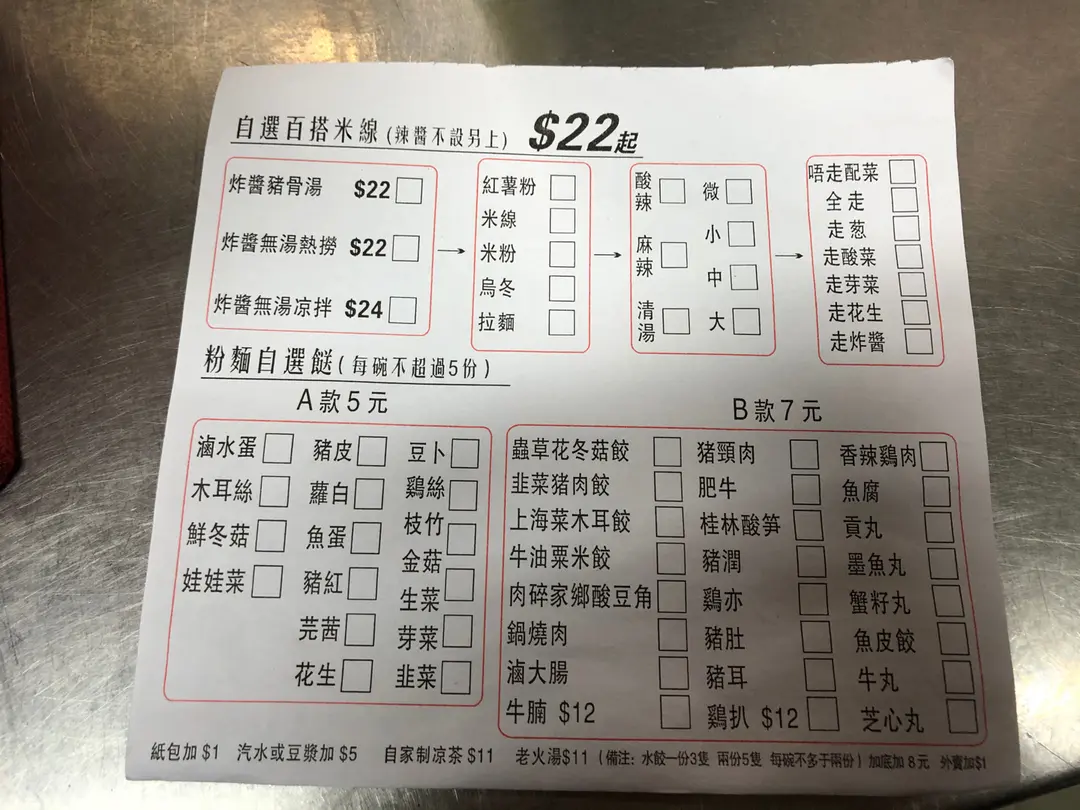 自選百搭米線(辣醬不設另上) $22起
炸醬豬骨湯 $22
炸醬無湯熱撈 $22
炸醬無湯凉拌 $24
紅薯粉
米線
米粉
烏冬
拉麵
酸辣
麻辣
清湯
微
小
中
大
唔走配菜
全走
走葱
走酸菜
走芽菜
走花生
走炸醬
粉麵自選餸(每碗不超過5份)
A款5元
滷水蛋
木耳絲
鮮冬菇
娃娃菜
豬皮
蘿白
魚蛋
豬紅
芫茜
花生
豆卜
鷄絲
枝竹
金菇
生菜
芽菜
韭菜
B款7元
蟲草花冬菇餃
韭菜豬肉餃
上海菜木耳餃
牛油粟米餃
肉碎家鄉酸豆角
鍋燒肉
滷大腸
牛腩 $12
豬頸肉
肥牛
桂林酸笋
豬潤
鷄亦
豬肚
豬耳
鷄扒 $12
香辣鷄肉
魚腐
貢丸
墨魚丸
蟹籽丸
魚皮餃
牛丸
芝心丸
紙包加 $1 汽水或豆漿加 $5 自家制凉茶 $11 老火湯$11 (備注: 水餃一份3隻 兩份5隻 每碗不多于兩份) 加底加 8 元 外賣加$1